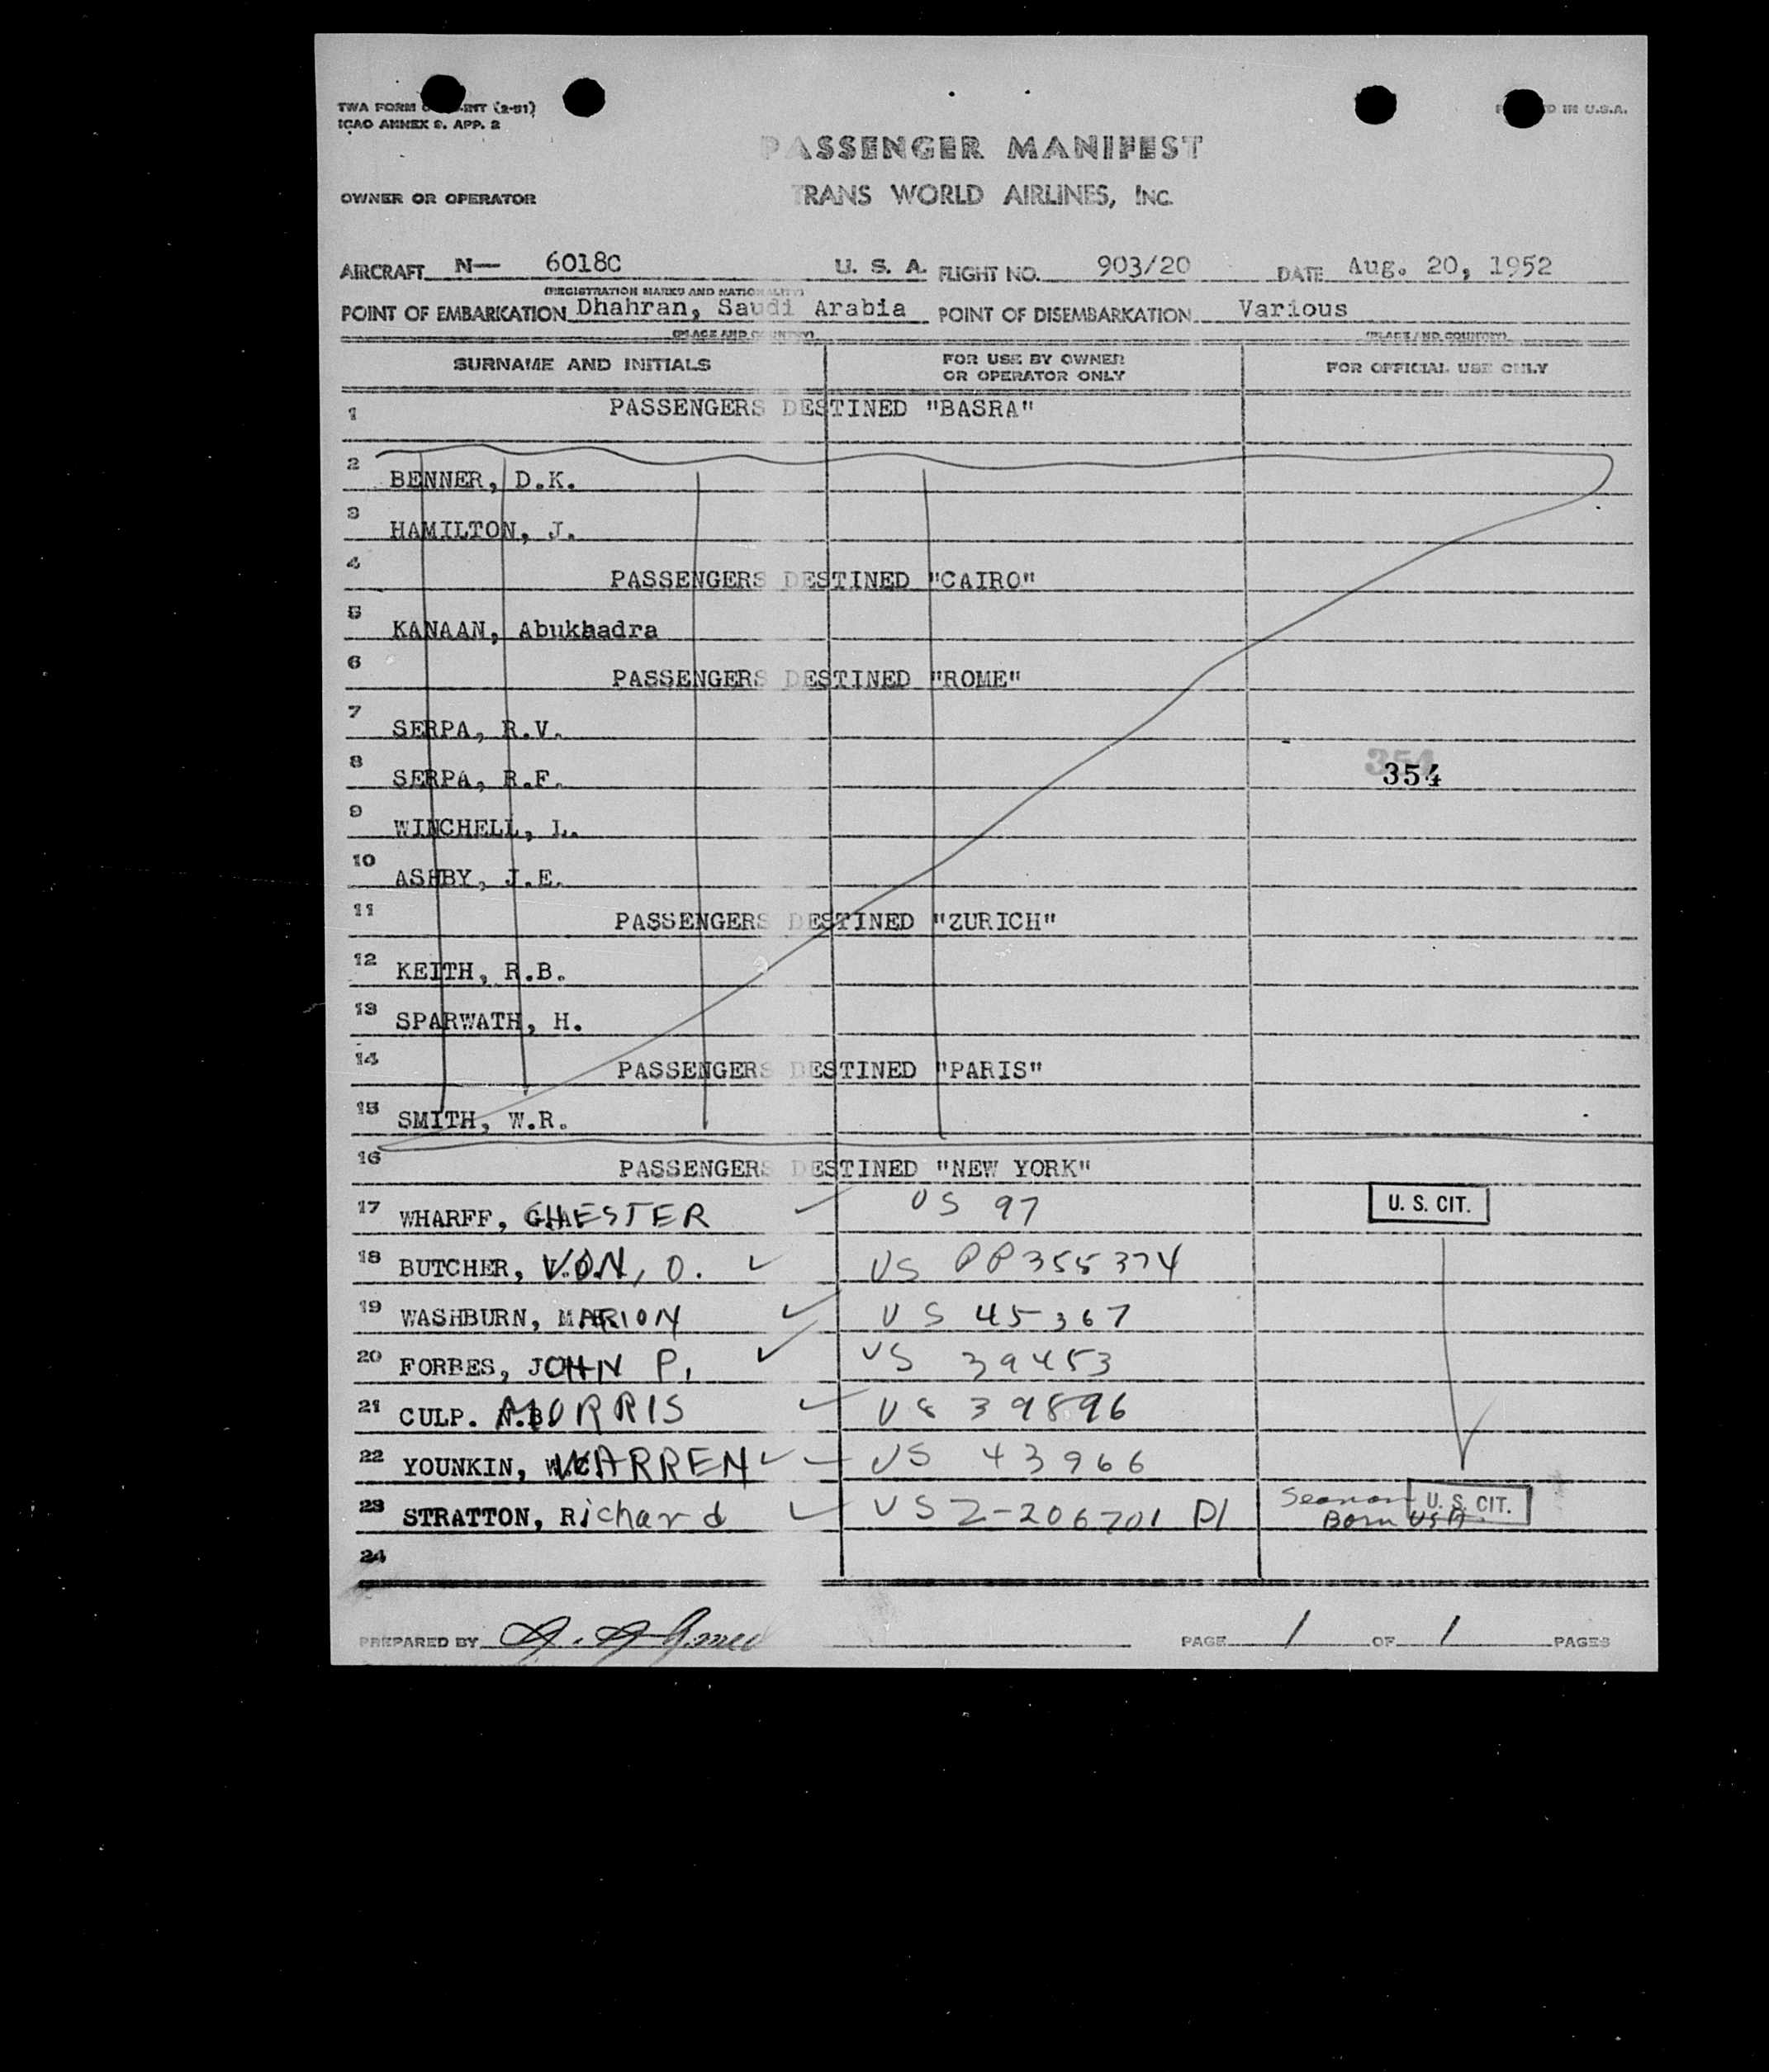 TWA FORM INT (2-51)
ICAO ANNEX 9. APP. 2
IN U.S.A.
PASSENGER MANIFEST
OWNER OR OPERATOR TRANS WORLD AIRLINES, INC.
AIRCRAFT N— 6018C U. S. A. FLIGHT NO. 903/20 DATE Aug. 20, 1952
(REGISTRATION MARKS AND NATIONALITY)
POINT OF EMBARKATION Dhahran, Saudi Arabia POINT OF DISEMBARKATION Various
(PLACE AND COUNTRY) (PLACE AND COUNTRY)
SURNAME AND INITIALS FOR USE BY OWNER OR OPERATOR ONLY FOR OFFICIAL USE ONLY
1 PASSENGERS DESTINED "BASRA"
2 BENNER, D.K.
3 HAMILTON, J.
4 PASSENGERS DESTINED "CAIRO"
5 KANAAN, Abukhadra
6 PASSENGERS DESTINED "ROME"
7 SERPA, R.V.
8 SERPA, R.F. 354
9 WINCHELL, L.
10 ASHBY, J.E.
11 PASSENGERS DESTINED "ZURICH"
12 KEITH, R.B.
13 SPARWATH, H.
14 PASSENGERS DESTINED "PARIS"
15 SMITH, W.R.
16 PASSENGERS DESTINED "NEW YORK"
17 WHARFF, CHESTER ✓ US 97 U. S. CIT.
18 BUTCHER, VON, O. ✓ US PP355374
19 WASHBURN, MARION ✓ US 45367
20 FORBES, JOHN P. ✓ US 39453
21 CULP. MORRIS ✓ US 39896
22 YOUNKIN, WARREN ✓ US 43966
23 STRATTON, Richard ✓ US Z-206701 D1 Seaman U. S. CIT.
Born USA
24
PREPARED BY PAGE 1 OF 1 PAGES